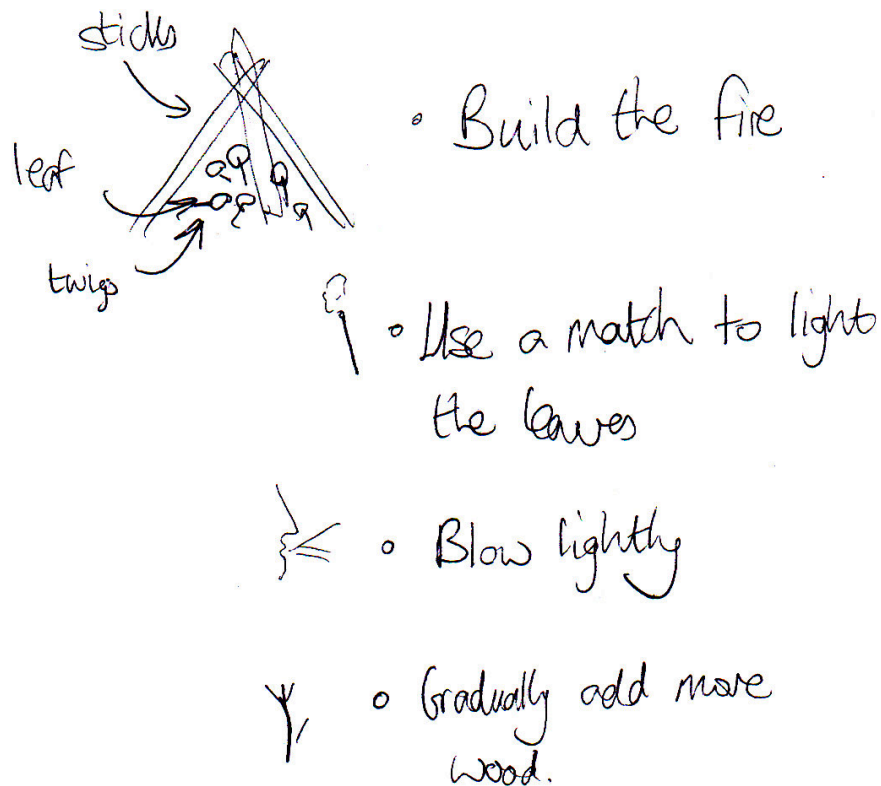 sticks
leaf
twigs
• Build the fire
• Use a match to light
the leaves
• Blow lightly
• Gradually add more
wood.